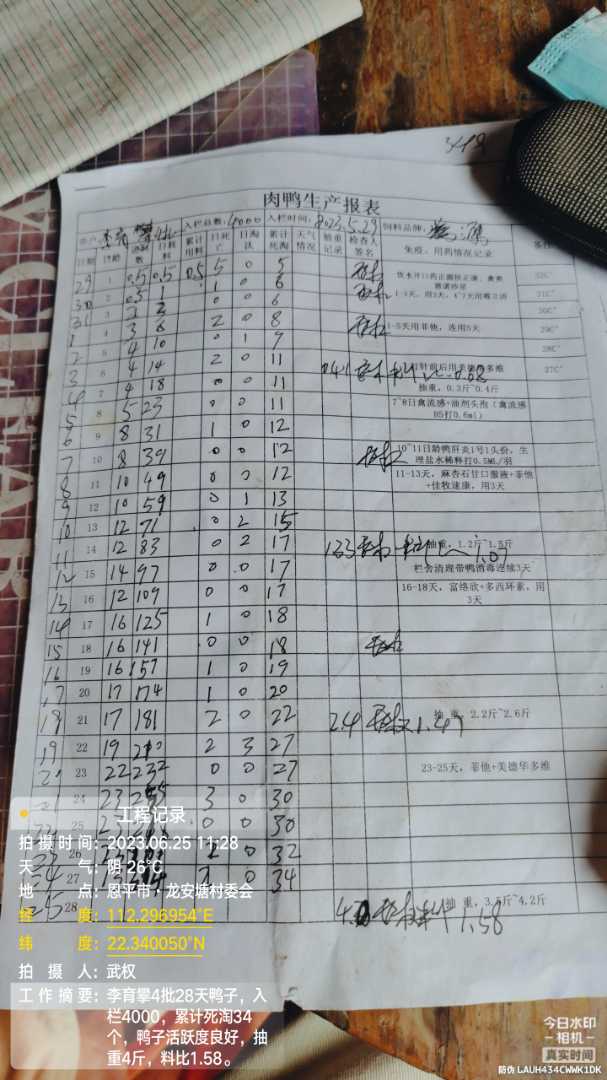 3418
肉鸭生产报表
入栏总数: 4000 入栏时间: 2023.5.29 饲料品牌:
日期 日龄 日耗料 累计用料 日死亡 日淘汰 累计死淘 天气情况 抽重记录 检查人签名 免疫、用药情况记录
29 0.5 0.5 0.5 5 0 5 饮水开口药 32C°
30 2 0.5 1 1 0 6 31C°
31 3 2 3 0 0 6 30C°
1 4 3 6 2 0 8 1-5天用菲他,连用5天 29C°
2 5 4 10 0 1 9 28C°
3 6 4 14 2 0 11 27C°
4 7 4 18 0 0 11 抽重,0.3斤~0.4斤
5 8 5 23 0 0 11 7~8日禽流感+油剂头孢(禽流感H5打0.6ml)
6 9 8 31 1 0 12
7 10 8 39 0 0 12 10~11日龄鸭肝炎1号1头份,生理盐水稀释打0.5ML/羽
8 11 10 49 0 0 12 11-13天,麻杏石甘口服液+菲他+佳牧速康,用3天
9 12 10 59 0 1 13
10 13 12 71 0 2 15
11 14 12 83 0 2 17 1.33 抽重,1.2斤~1.5斤 1.07
12 15 14 97 0 0 17 栏舍清理带鸭消毒连续3天
13 16 12 109 0 0 17 16-18天,富络欣+多西环素,用3天
14 17 16 125 1 0 18
15 18 16 141 0 0 18
16 19 16 157 1 0 19
17 20 17 174 1 0 20
18 21 17 181 2 0 22 2.4 抽重,2.2斤~2.6斤 1.47
19 22 19 210 2 3 27
20 23 22 232 0 0 27 23-25天,菲他+美德华多维
21 24 23 255 3 0 30
25 0 0 30
26 2 0 32
27 0 34
25 28 抽重,3.5斤~4.2斤 1.58
工程记录
拍摄时间:2023.06.25 11:28
天气:阴 26℃
地点:恩平市,龙安塘村委会
经度:112.296954°E
纬度:22.340050°N
拍摄人:武权
工作摘要:李育攀4批28天鸭子,入
栏4000,累计死淘34
个,鸭子活跃度良好,抽
重4斤,料比1.58。
今日水印
-相机-
真实时间
防伪 LAUH434CWWK1DK